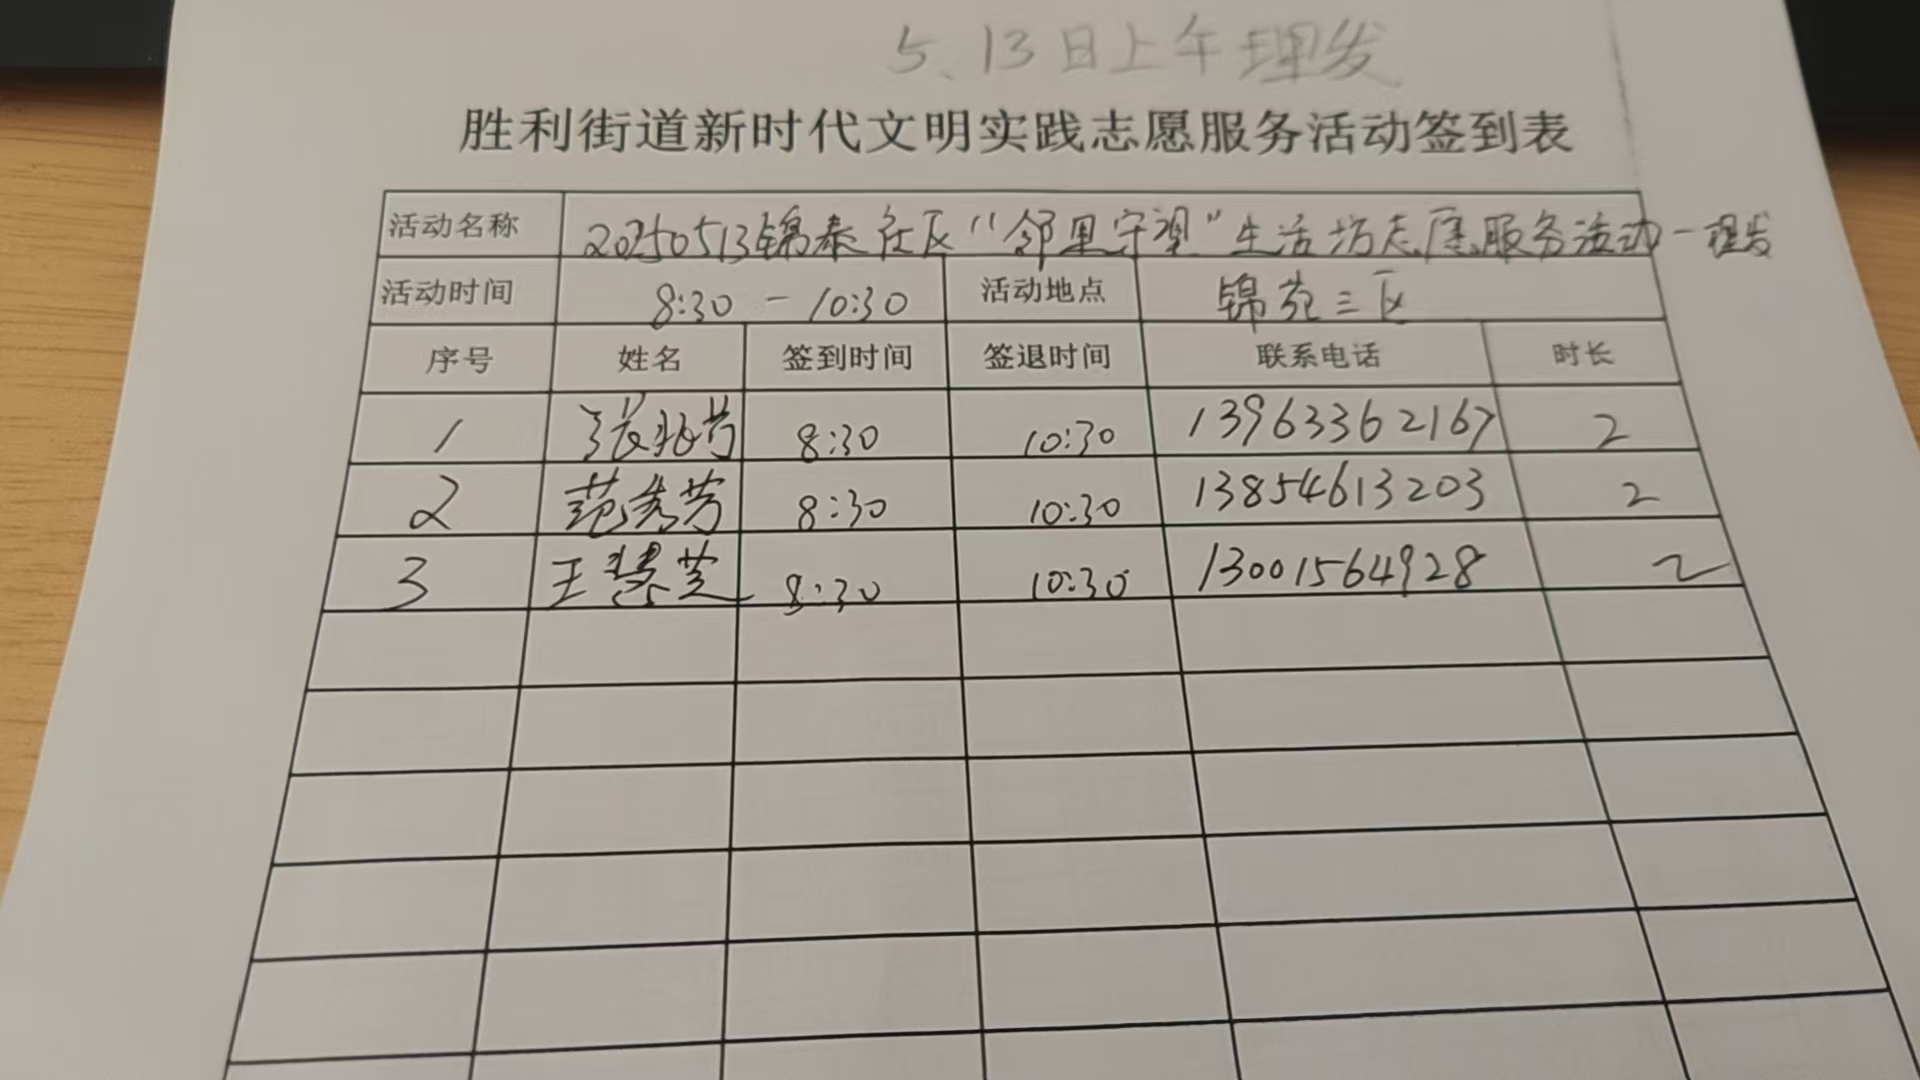 5、13日上午理发
胜利街道新时代文明实践志愿服务活动签到表
活动名称 20250513锦泰社区“邻里守望”生活坊志愿服务活动-理发
活动时间 8:30 - 10:30 活动地点 锦苑三区
序号 姓名 签到时间 签退时间 联系电话 时长
1 张兆芳 8:30 10:30 13963362167 2
2 范秀芳 8:30 10:30 13854613203 2
3 王慧芝 8:30 10:30 13001564928 2